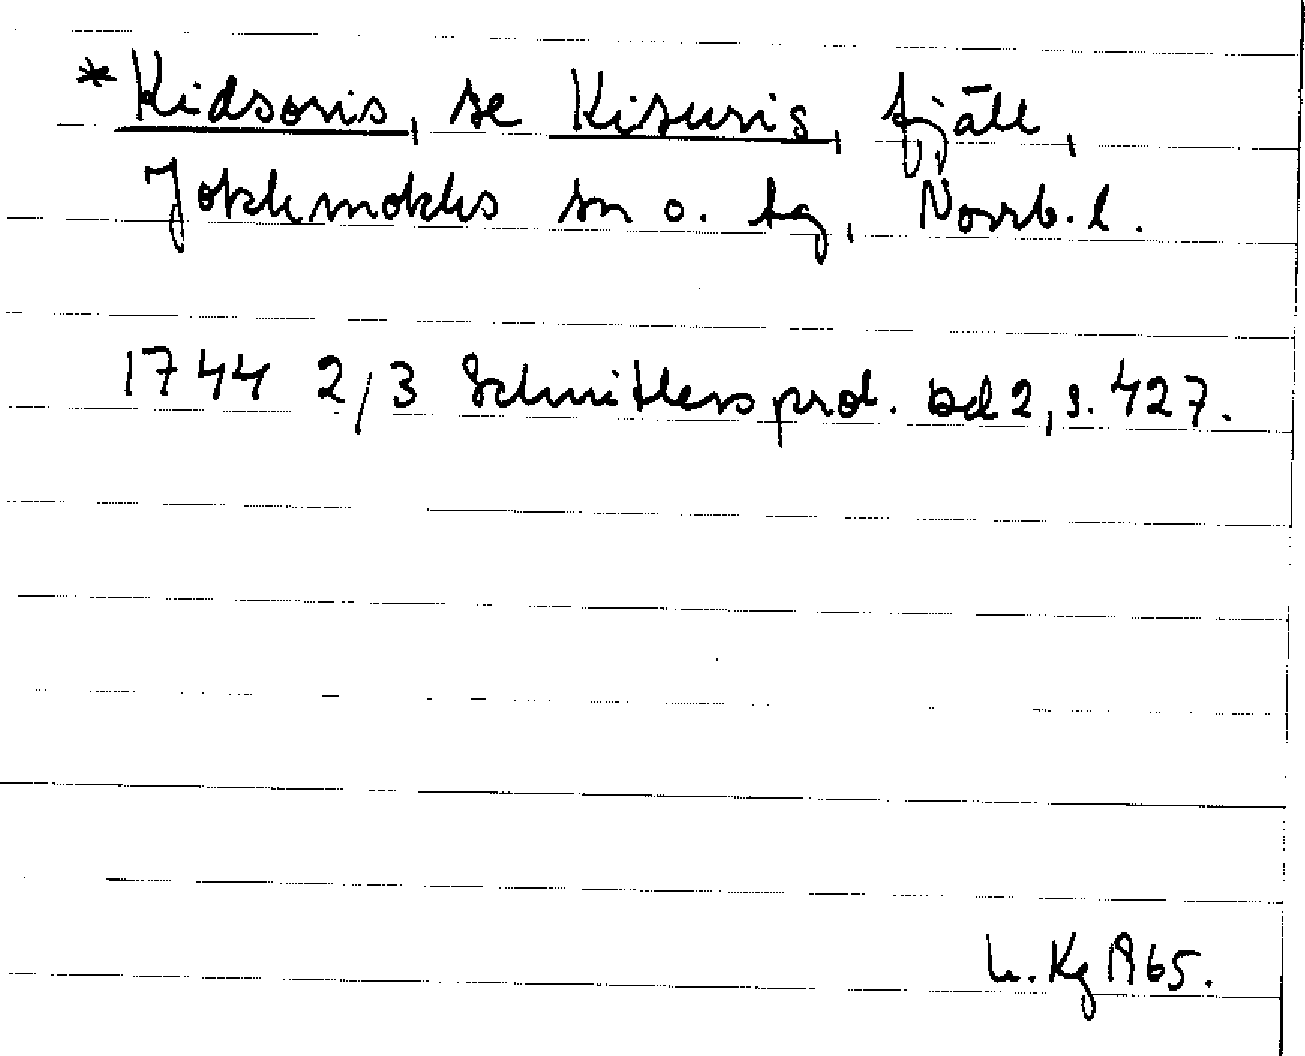 *Kidsoris, se Kisuris, fjäll,
Jokkmokks sn o. tg, Norrb. l.
1744 2/3 Schnitlers prot. bd 2, s. 427.
65.